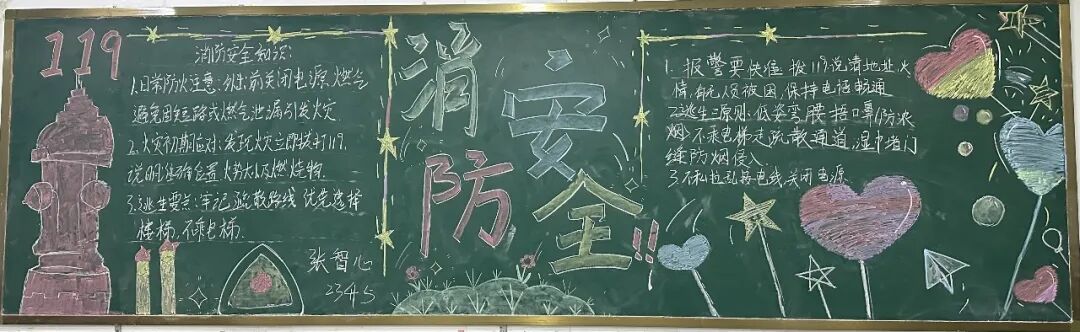 119
消防安全知识:
1.日常防火注意:外出前关闭电源燃气
避免因短路或燃气泄漏引发火灾
2.火灾初期应对:发现火灾立即拨打119,
说明具体位置、火势大小及燃烧物.
3.逃生要点:牢记疏散路线 优先选择
楼梯,不乘电梯.
张智心
2345
消防安全!!
1. 报警要快准 拨119说清地址火
情,有无人员被困,保持电话畅通
2.逃生原则:低姿弯腰捂口鼻防浓
烟,不乘电梯走疏散通道,湿巾堵门
缝防烟侵入
3.不私拉乱接电线 关闭电源